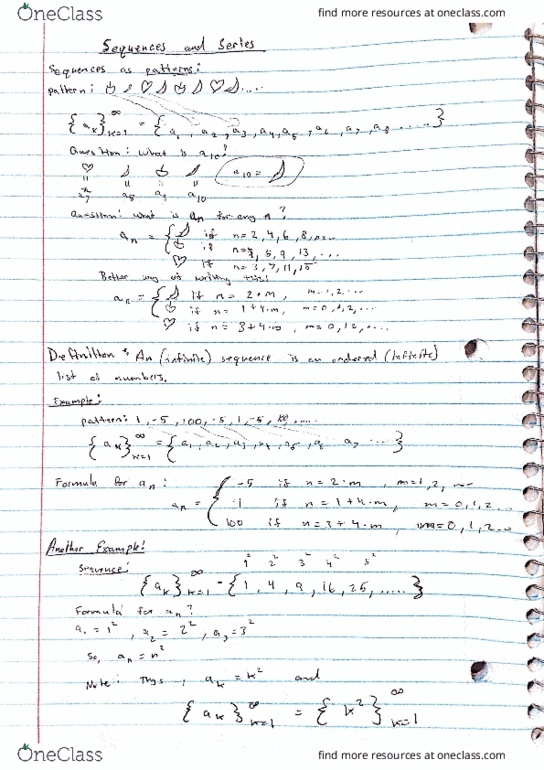 OneClass
find more resources at oneclass.com
Sequences and Series
Sequences as patterns:
pattern:
{a_k}_{k=1}^∞ = {a_1, a_2, a_3, a_4, a_5, a_6, a_7, a_8 .....}
Question: What is a_10?
a_10 =
a_7 a_8 a_9 a_10
Question: what is a_n for any n?
a_n = { if n=2,4,6,8,...
if n=1, 5, 9, 13, ...
if n=3, 7, 11, 15
Better way of writing this:
a_n = { if n = 2·m, m=1,2,...
if n = 1+4·m, m=0,1,2,...
if n = 3+4·m, m=0,1,2,...
Definition: An (infinite) sequence is an ordered (infinite)
list of numbers.
Example:
pattern: 1, -5, 100, -5, 1, -5, 100, ....
{a_k}_{k=1}^∞ = {a_1, a_2, a_3, a_4, a_5, a_6 a_7 ...}
Formula for a_n:
a_n = { -5 if n = 2·m, m=1,2, ...
1 if n = 1+4·m, m=0,1,2...
100 if n=3+4·m, m=0,1,2...
Another Example:
1² 2² 3² 4² 5²
Sequence: {a_k}_{k=1}^∞ = {1, 4, 9, 16, 25, .....}
Formula for a_n?
a_1 = 1², a_2 = 2², a_3 = 3²
So, a_n = n²
Note: Thus, a_k = k² and
{a_k}_{k=1}^∞ = {k²}_{k=1}^∞
OneClass
find more resources at oneclass.com